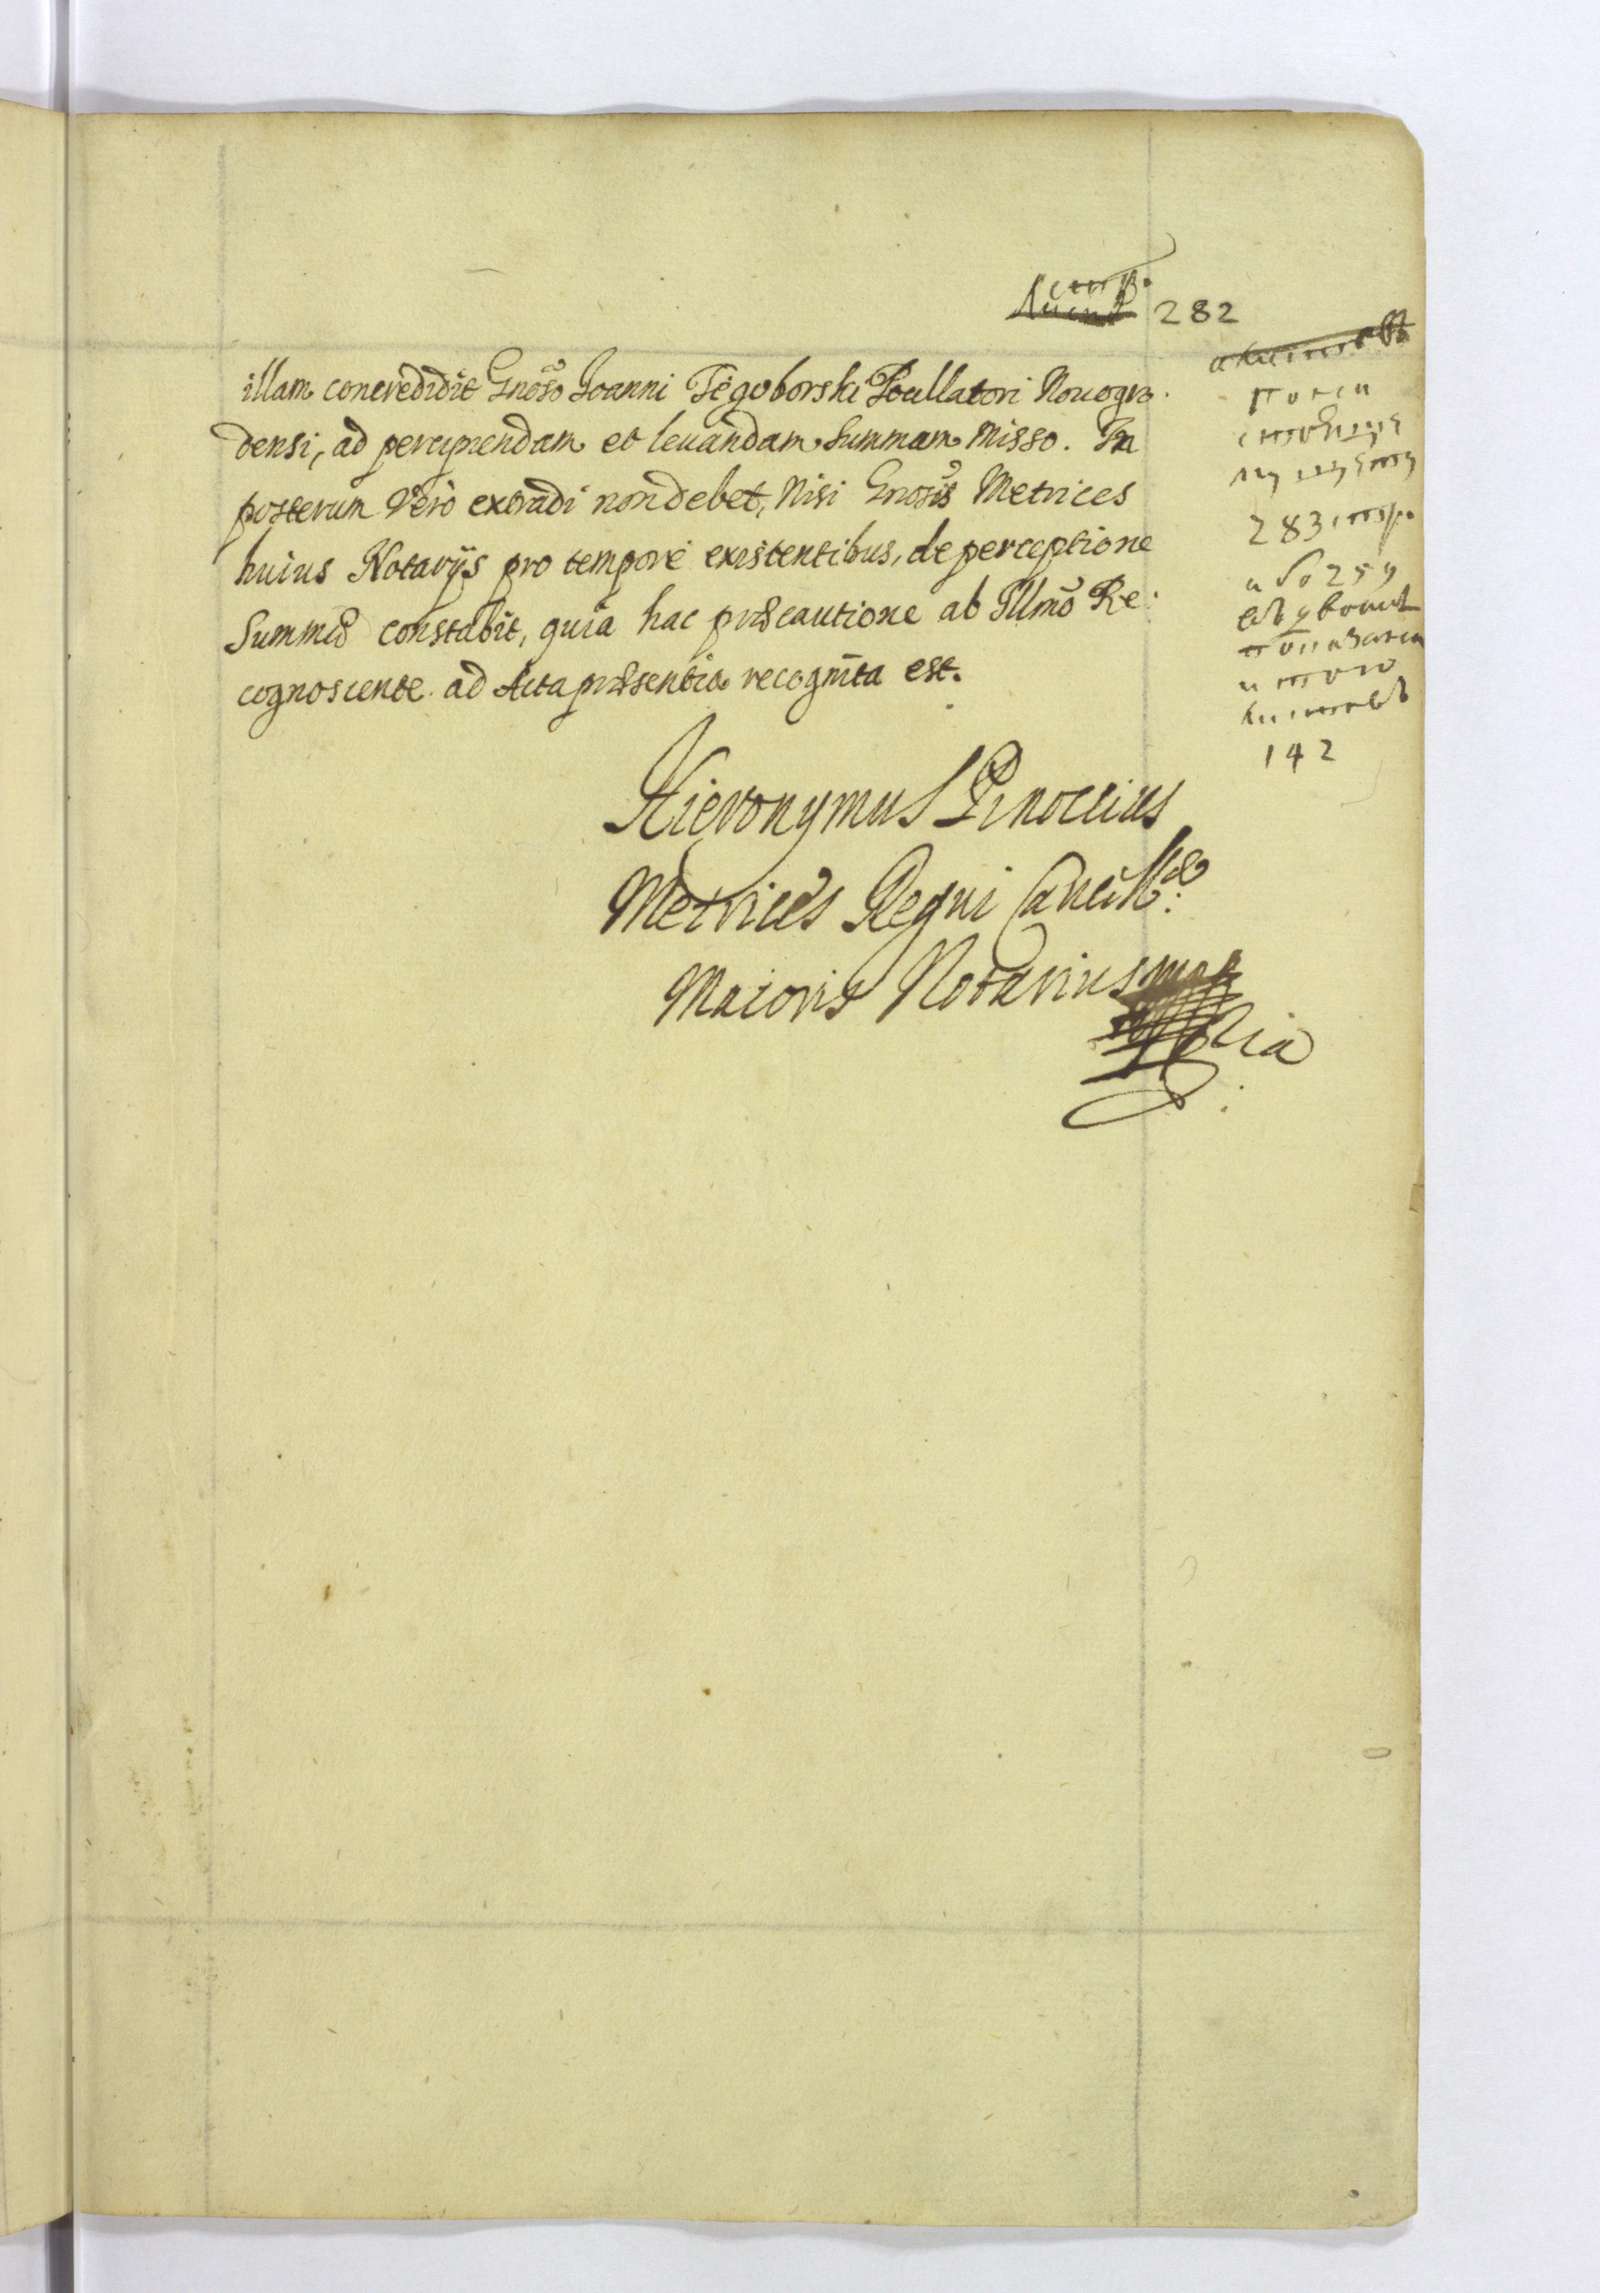 стр.
282
illam concredidit Gnōso Joanni Tęgoborski Pocillatori Nouogro
densi, ad percipiendam et leuandam Summam misso. In
posterum vero extradi non debet, nisi Gnōsis Metrices
huius Notarijs pro tempore existentibus, de perceptione
Summæ constabit, quia hac præcautione ab Illmō Re:
cognoscente ad Acta præsentia recognita est.
Hieronymus Pinoccius
Metrices Regni Cancillæ:
Maioris Notarius
ria
283 стр.
и 259
и того
листовъ
142